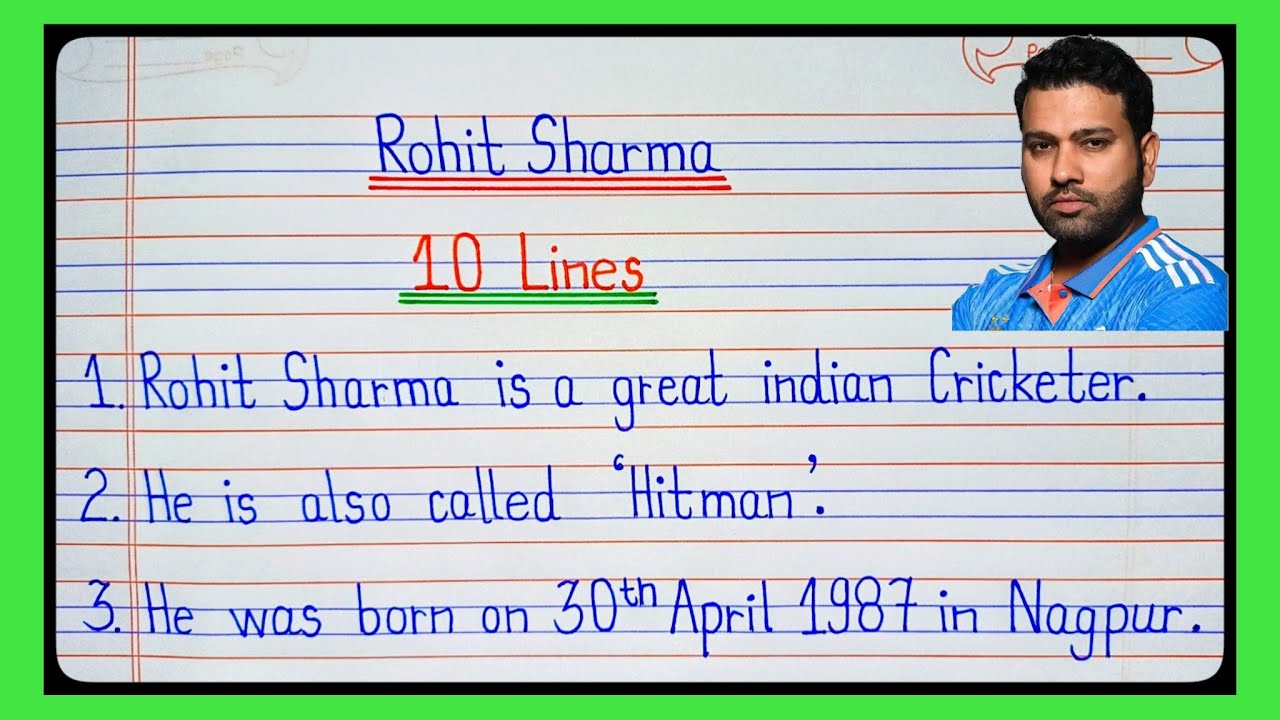 Rohit Sharma
10 Lines
1. Rohit Sharma is a great indian Cricketer.
2. He is also called 'Hitman'.
3. He was born on 30th April 1987 in Nagpur.